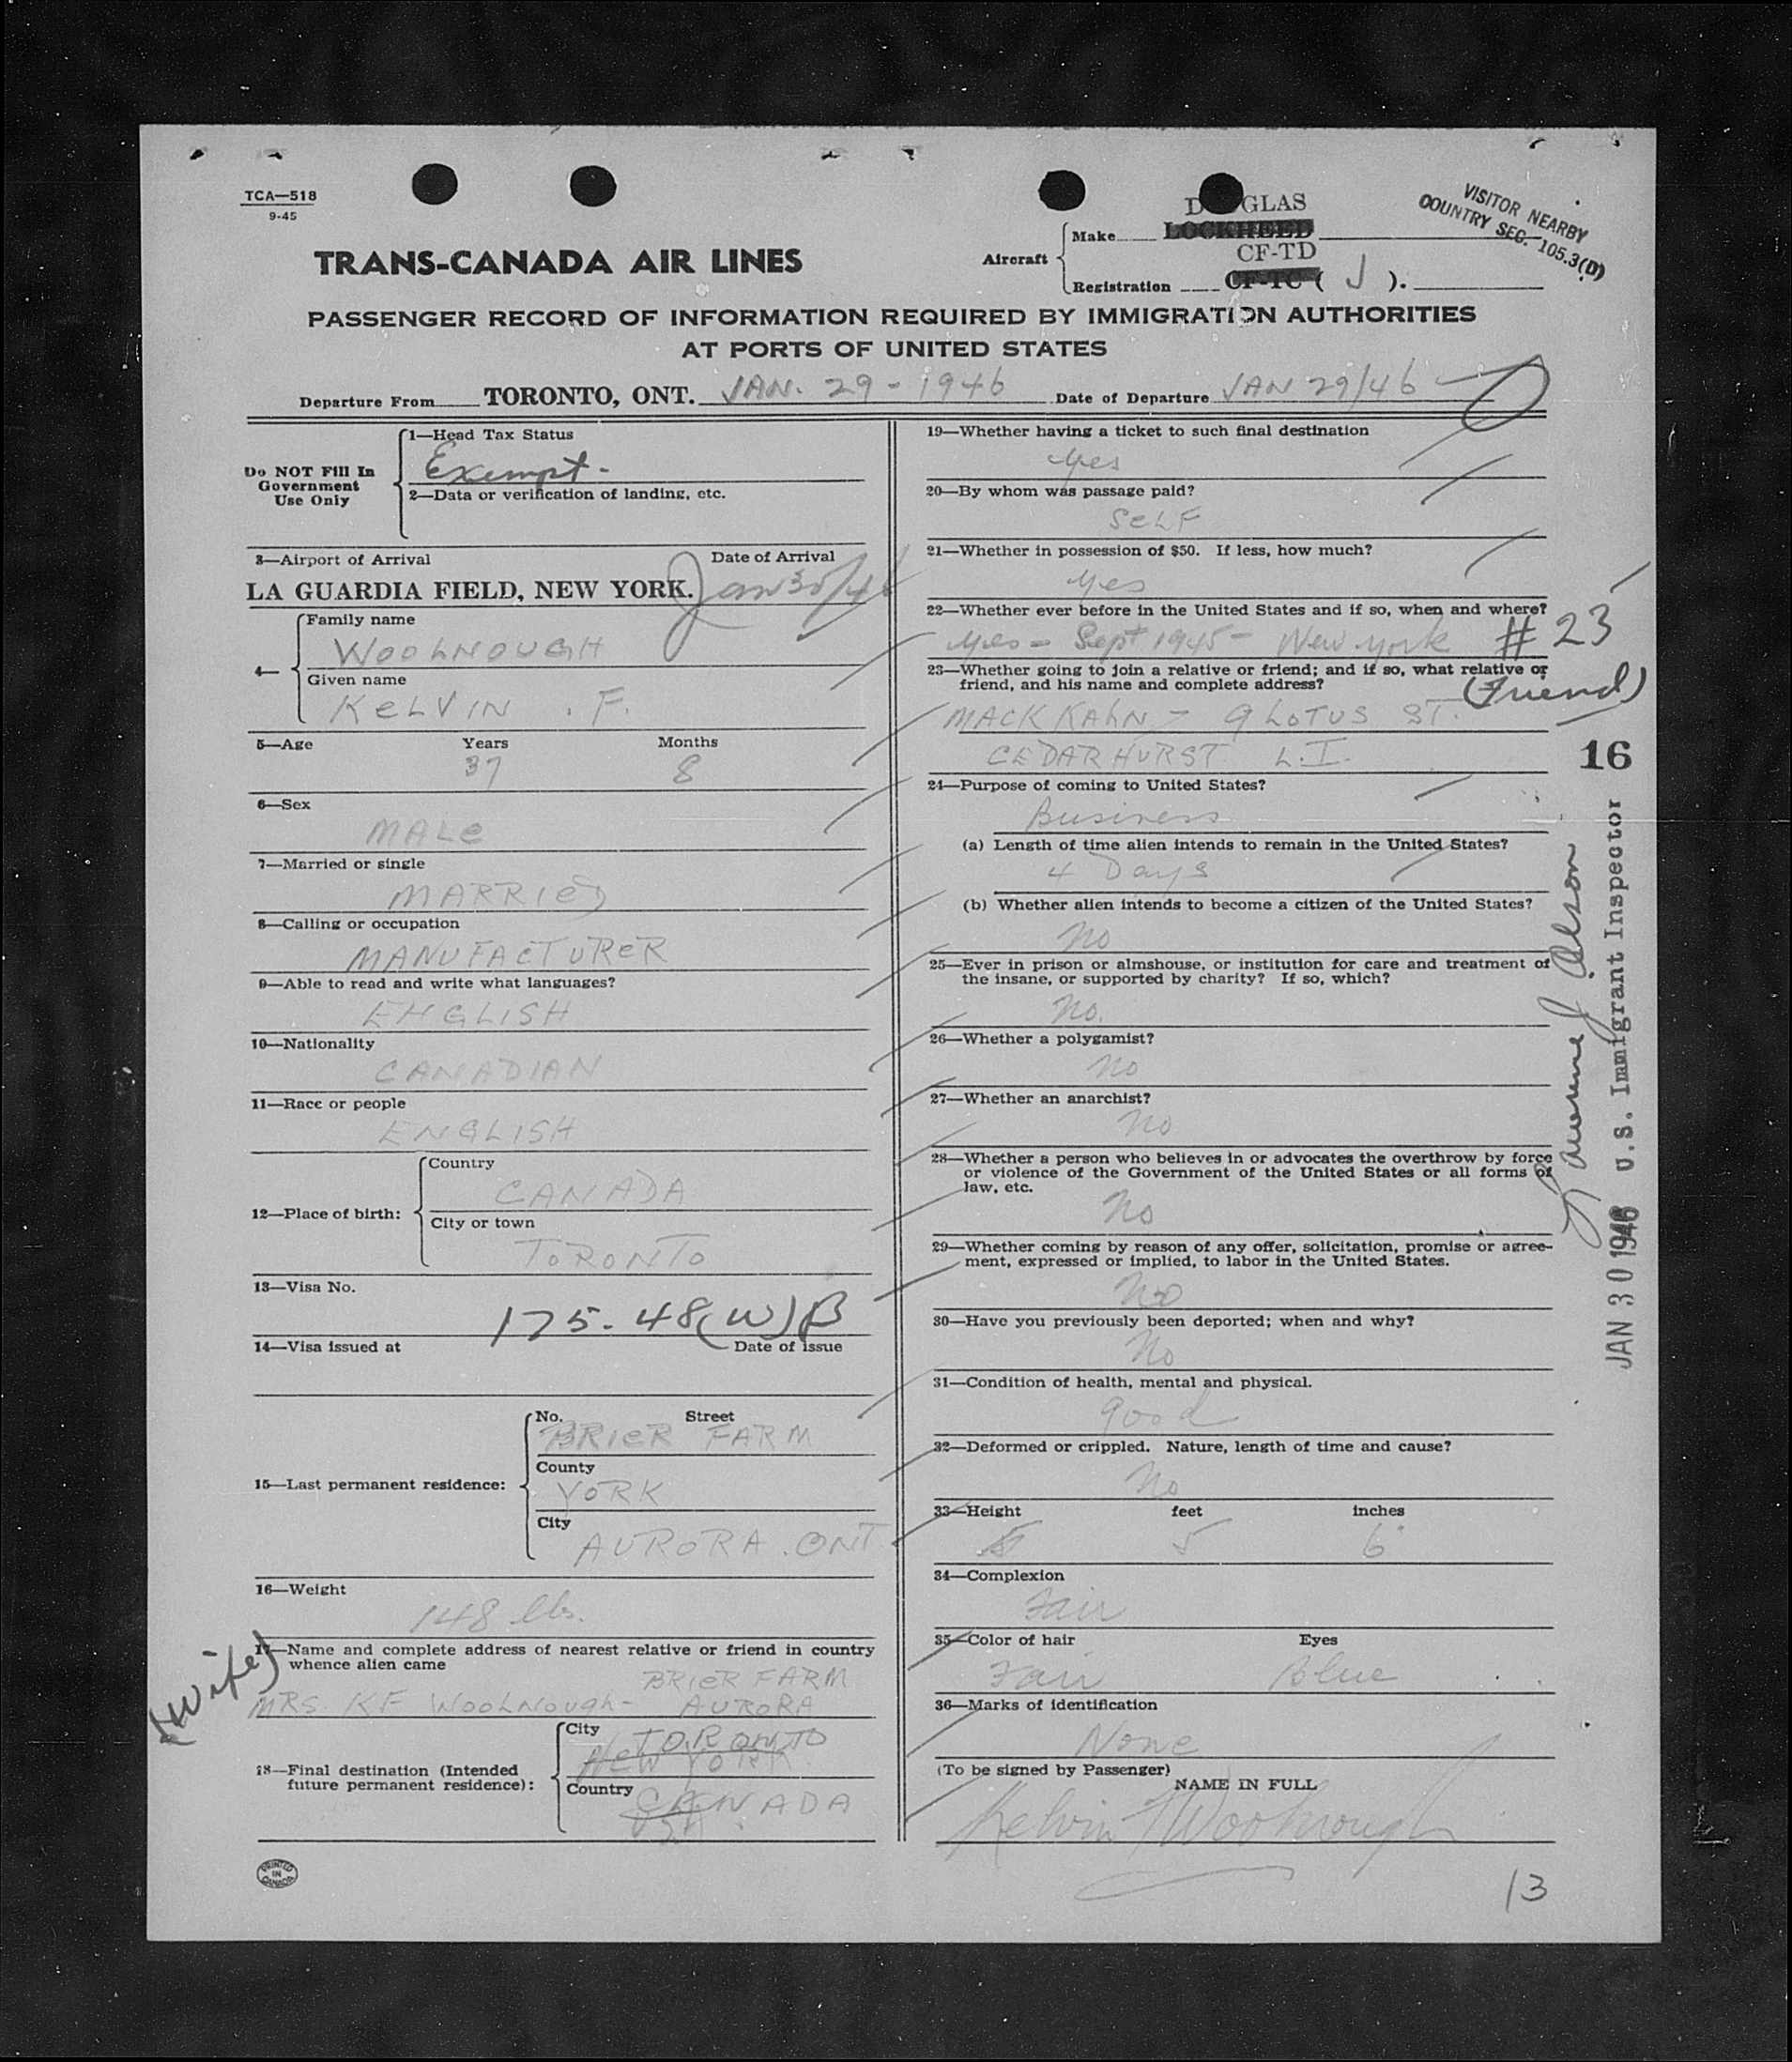 TCA—518
9-45
DOUGLAS
VISITOR NEARBY
COUNTRY SEC. 105.3(D)
TRANS-CANADA AIR LINES
Aircraft
Make LOCKHEED
CF-TD
Registration CF-TC ( J ).
PASSENGER RECORD OF INFORMATION REQUIRED BY IMMIGRATION AUTHORITIES
AT PORTS OF UNITED STATES
Departure From TORONTO, ONT. JAN. 29 - 1946 Date of Departure JAN 29/46
Do NOT Fill In
Government
Use Only
1—Head Tax Status
Exempt -
2—Data or verification of landing, etc.
3—Airport of Arrival Date of Arrival
LA GUARDIA FIELD, NEW YORK. Jan 30/46
4—
Family name
WOOLNOUGH
Given name
KELVIN . F.
5—Age Years Months
37 8
6—Sex
MALE
7—Married or single
MARRIED
8—Calling or occupation
MANUFACTURER
9—Able to read and write what languages?
ENGLISH
10—Nationality
CANADIAN
11—Race or people
ENGLISH
12—Place of birth:
Country
CANADA
City or town
TORONTO
13—Visa No.
175.48(W)B
14—Visa issued at Date of issue
15—Last permanent residence:
No. Street
BRIER FARM
County
YORK
City
AURORA . ONT
16—Weight
148 lbs.
(Wife)
17—Name and complete address of nearest relative or friend in country
whence alien came
BRIER FARM
MRS. KF WOOLNOUGH - AURORA
18—Final destination (Intended
future permanent residence):
City
TORONTO
NEW YORK
Country
CANADA
PRINTED
IN
CANADA
19—Whether having a ticket to such final destination
yes
20—By whom was passage paid?
SELF
21—Whether in possession of $50. If less, how much?
yes
22—Whether ever before in the United States and if so, when and where?
yes - Sept 1945 - New York
# 23
23—Whether going to join a relative or friend; and if so, what relative or
friend, and his name and complete address?
(Friend)
MACK KAHN - 9 LOTUS ST.
CEDARHURST L.I.
16
24—Purpose of coming to United States?
Business
(a) Length of time alien intends to remain in the United States?
4 Days
(b) Whether alien intends to become a citizen of the United States?
No
25—Ever in prison or almshouse, or institution for care and treatment of
the insane, or supported by charity? If so, which?
No.
26—Whether a polygamist?
No
27—Whether an anarchist?
No
28—Whether a person who believes in or advocates the overthrow by force
or violence of the Government of the United States or all forms of
law, etc.
No
29—Whether coming by reason of any offer, solicitation, promise or agree-
ment, expressed or implied, to labor in the United States.
No
30—Have you previously been deported; when and why?
No
31—Condition of health, mental and physical.
good
32—Deformed or crippled. Nature, length of time and cause?
No
33—Height feet inches
5 6
34—Complexion
Fair
35—Color of hair Eyes
Fair Blue
36—Marks of identification
None
(To be signed by Passenger)
NAME IN FULL
Kelvin F Woolnough
13
JAN 30 1946 U.S. Immigrant Inspector